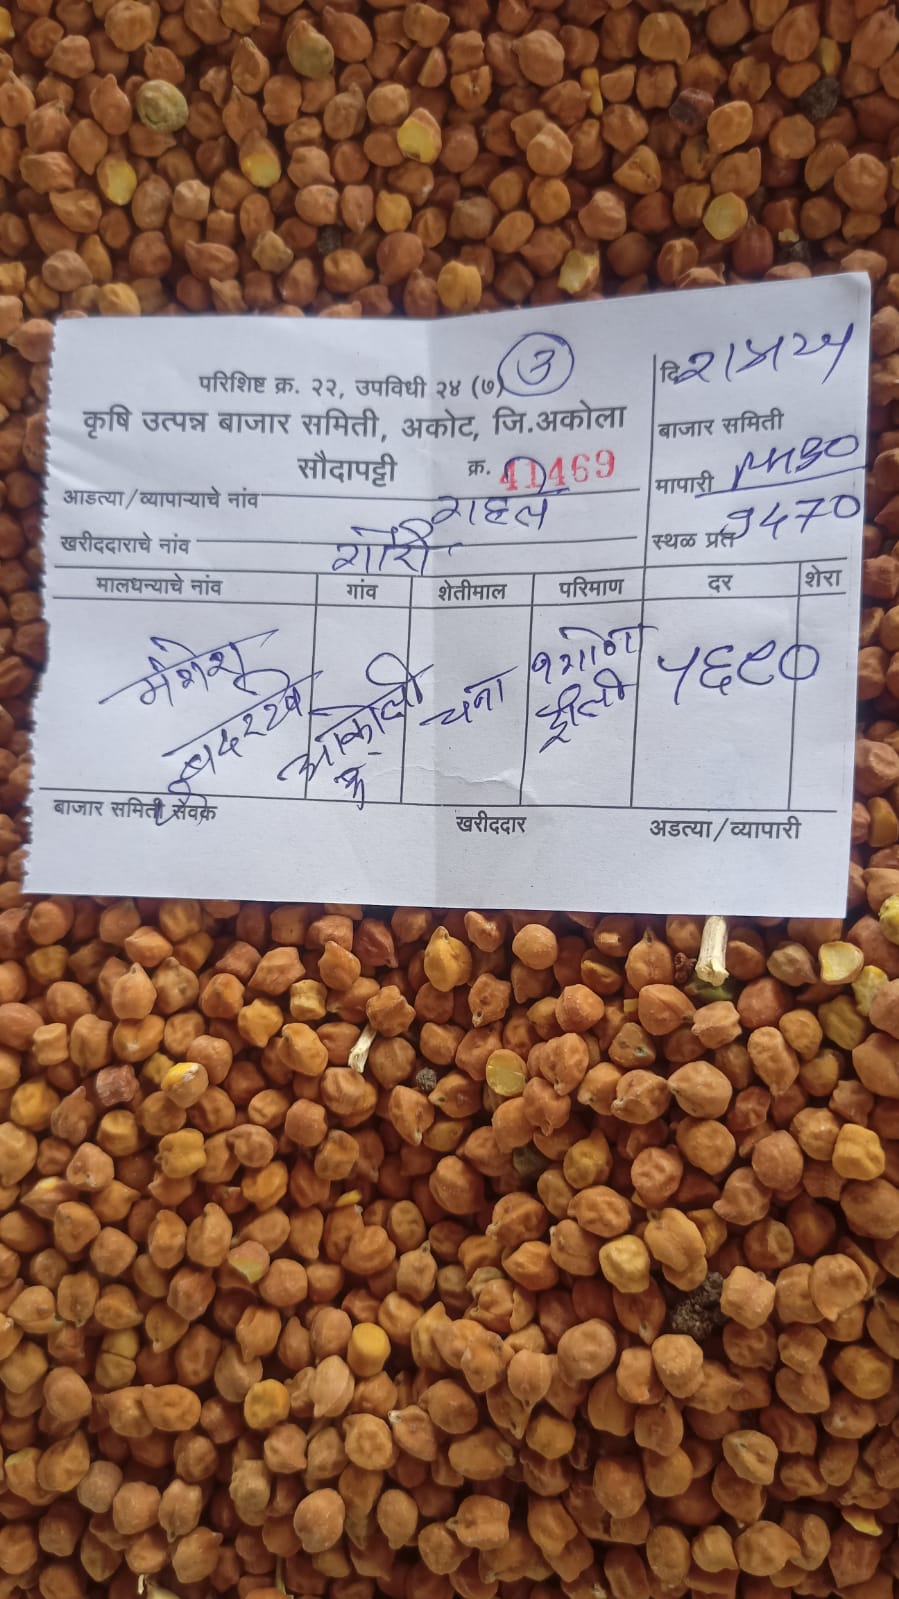 परिशिष्ट क्र. २२, उपविधी २४ (७)
कृषि उत्पन्न बाजार समिती, अकोट, जि.अकोला
सौदापट्टी क्र. 41469
दि
बाजार समिती
मापारी
स्थळ प्रत 9470
आडत्या/व्यापाऱ्याचे नांव राहुल
खरीददाराचे नांव गोरी
मालधन्याचे नांव गांव शेतीमाल परिमाण दर शेरा
मंगेश आकोली चना ५६९०
बाजार समिती सेवक खरीददार अडत्या/व्यापारी